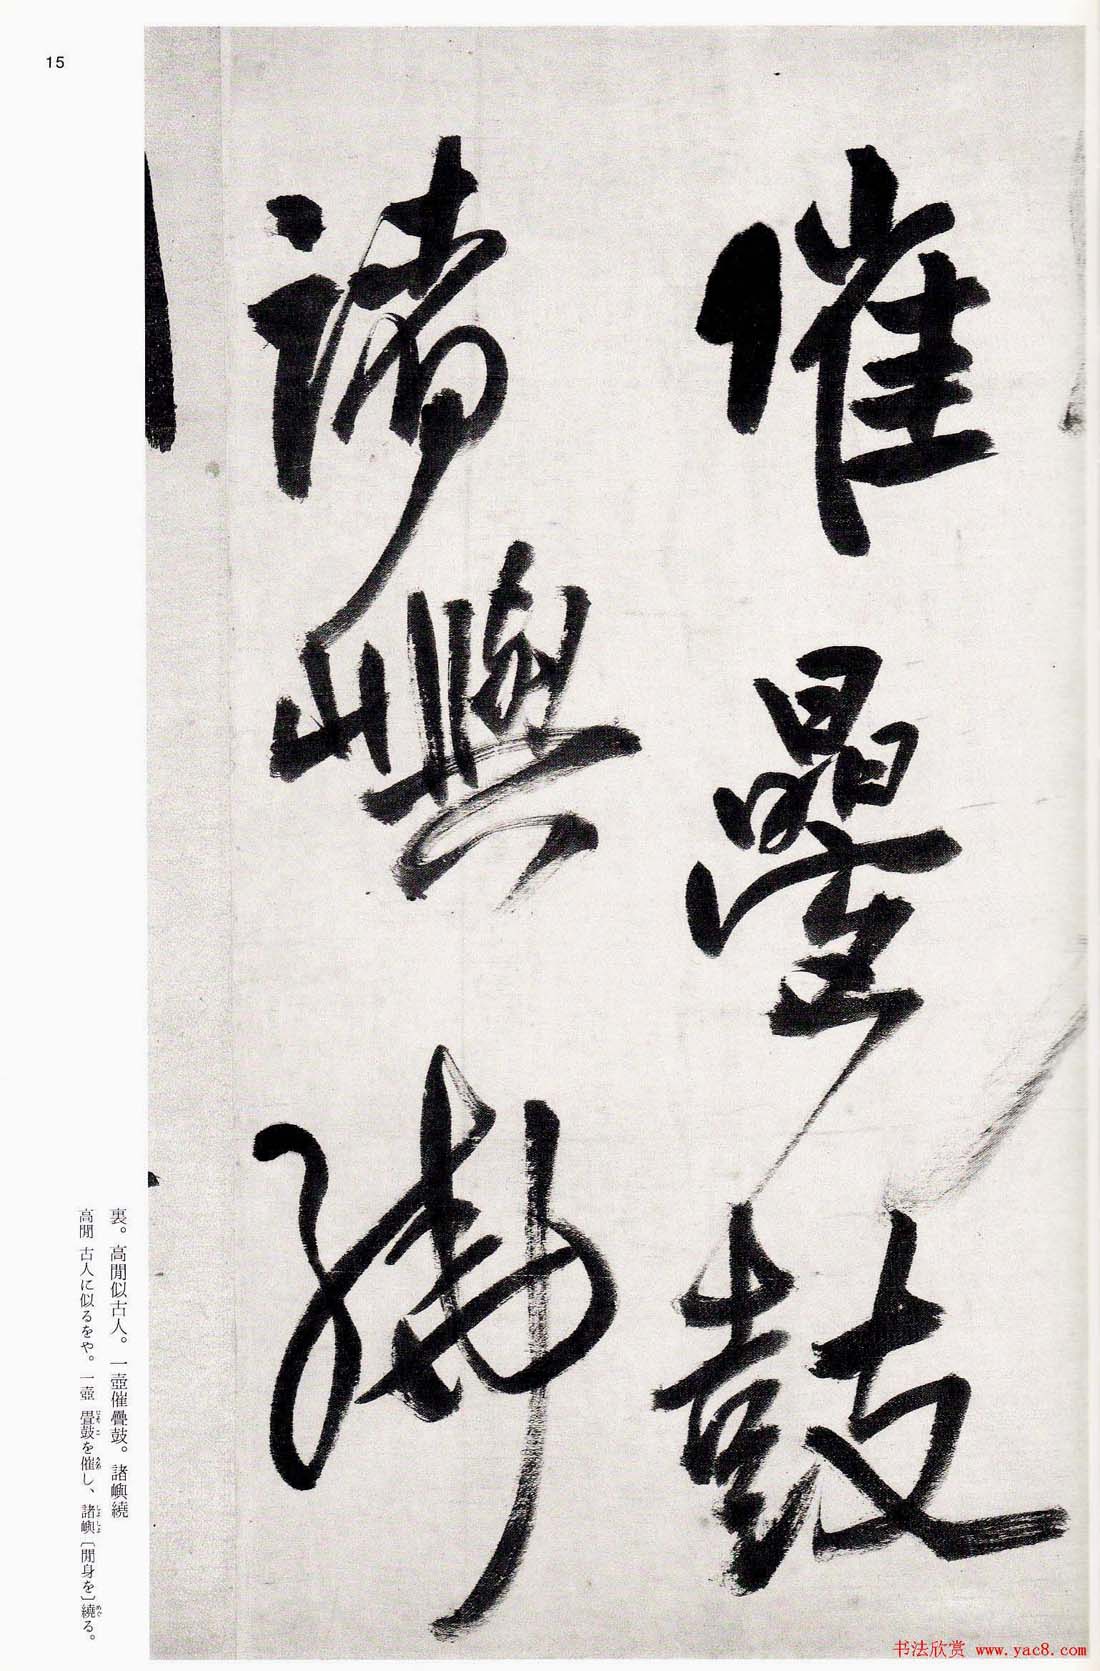 15
催疊鼓
諸嶼繞
裏。高閒似古人。一壺催疊鼓。諸嶼繞
高閒 古人に似るをや。一壺 畳鼓を催し、諸嶼〔閒身を〕繞る。
书法欣赏 www.yac8.com